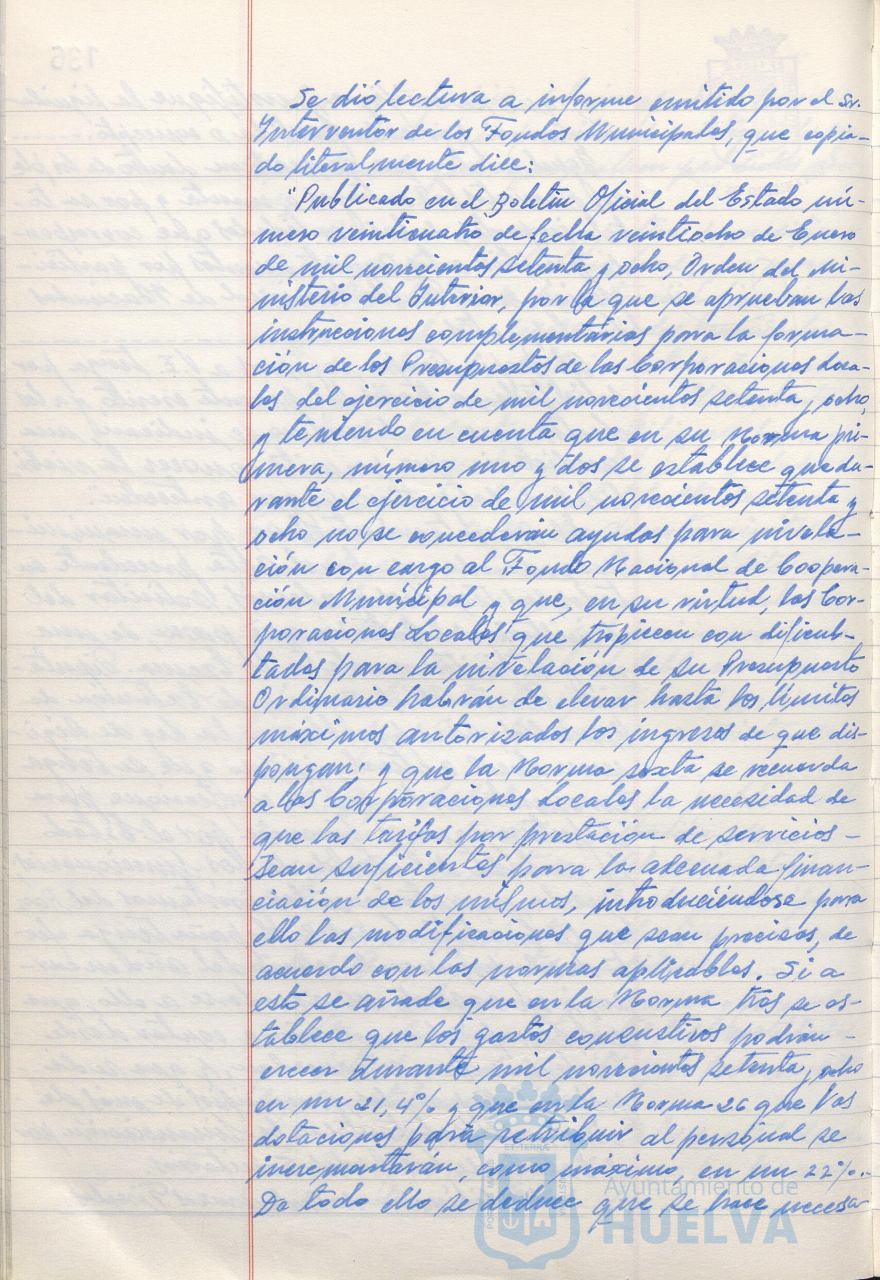 Se dió lectura a informe emitido por el Sr.
Interventor de los Fondos Municipales, que copia-
do literalmente dice:
"Publicado en el Boletín Oficial del Estado nú-
mero veinticuatro de fecha veintiocho de Enero
de mil novecientos setenta y ocho, Orden del Mi-
nisterio del Interior, por la que se aprueban las
instrucciones complementarias para la forma-
ción de los Presupuestos de las Corporaciones Loca-
les del ejercicio de mil novecientos setenta y ocho,
y teniendo en cuenta que en su Norma pri-
mera, número uno y dos se establece que du-
rante el ejercicio de mil novecientos setenta y
ocho no se concederán ayudas para nivela-
ción con cargo al Fondo Nacional de Coopera-
ción Municipal y que, en su virtud, las Cor-
poraciones Locales que tropiecen con dificul-
tades para la nivelación de su Presupuesto
Ordinario habrán de elevar hasta los límites
máximos autorizados los ingresos de que dis-
pongan; y que la Norma sexta se recuerda
a las Corporaciones Locales la necesidad de
que las tarifas por prestación de servicios -
sean suficientes para la adecuada finan-
ciación de los mismos, introduciéndose para
ello las modificaciones que sean precisas, de
acuerdo con las normas aplicables. Si a
esto se añade que en la Norma tres se es-
tablece que los gastos consuntivos podrán -
crecer durante mil novecientos setenta y ocho
en un 21,4% y que en la Norma 26 que las
dotaciones para retribuir al personal se
incrementarán, como máximo, en un 22%.-
De todo ello se deduce que se hace necesa-
Ayuntamiento de
HUELVA